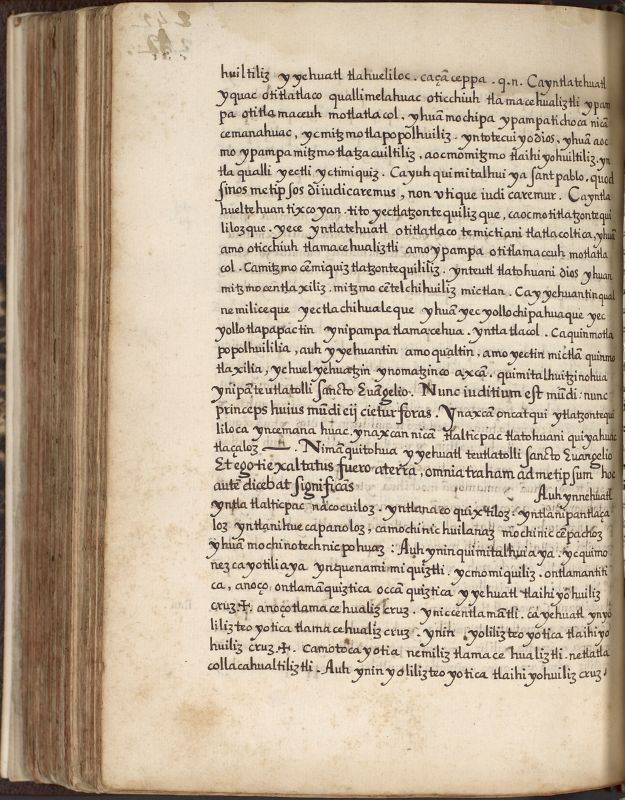 huiltiliz yyehuatl tlahueliloc. caçãceppa. q.n. Cayntlatehuatl
yquac otitlatlaco quallimelahuac oticchiuh tlamacehualiztli ypam
pa otitlamaceuh motlatlacol, yhuã mochipa ypampatichoca nicã
cemanahuac, ycmitzmotlapopolhuiliz. yntotecuiyo dios, yhuã aoc
mo ypampa mitzmotlatzacuiltiliz, aocmo mitzmo tlaihiyohuiltiliz. yn
tla qualli yectli yctimiquiz. Cayuh quimitalhui ya sant pablo. quod
si nos metipsos diiudicaremus, non vtique iudicaremur. Cayntla
hueltehuan tixcoyan. tito yectlatzontequilizque, caocmo titlatzontequi
lilozque. yece yntlatehuatl otitlatlaco temictiani tlatlacoltica, yhuã
amo oticchiuh tlamacehualiztli amo ypampa otitlamaceuh motlatla
col. Camitzmo cemiquiz tlatzontequililiz. ynteutl tlatohuani dios yhuan
mitzmocentlaxiliz. mitzmo cẽtelchihuiliz mictlan. Cayyehuantin qual
nemiliceque yectlachihualeque yhuã yecyollochipahuaque yec
yollotlapapactin ynipampa tlamacehua. yntlatlacol. Caquinmotla
popolhuililia, auh yyehuantin amo qualtin, amo yectin mictlã quinmo
tlaxilia, yehuel yehuatzin ynomatzinco axcã. quimitalhuitzinohua
ynipã teutlatolli sancto Euãgelio. Nunc iuditium est mũdi: nunc
princeps huius mũdi eijcietur foras. Ynaxcã oncatqui ytlatzontequi
liloca yncemanahuac, ynaxcan nicã tlalticpac tlatohuani quiyahuac
tlaçaloz —. Nimã quitohua yyehuatl teutlatolli sancto Euangelio
Et ego si exaltatus fuero a terra, omnia traham ad metipsum hoc
autẽ dicebat significãs
Auh ynnehuatl
yntla tlalticpac nãcocuiloz. yntlanecoquixtiloz. yntlanipantlaça
loz yntlanihuecapanoloz, camochinic huilanaz mochinic cẽpachoz
yhuã mochinotechnicpohuaz: Auh yninquimitalhuiaya. ycquimo
nezcayotiliaya ynquenami miquiztli. ycmomiquiliz. ontlamantiti
ca, anoço. ontlamãquiztica occã quiztica yyehuatl tlaihiyohuiliz
cruz✠, anoço tlamacehualiz cruz. yniccentlamãtli. cayehuatl ynyo
lilizteoyotica tlamacehualiz cruz. ynin yoliliz teoyotica tlaihiyo
huiliz cruz.✠. camotocayotia nemiliz tlamacehualiztli. netlatla
collacahualtiliztli. Auh ynin yoliliz teoyotica tlaihiyohuiliz cruz.